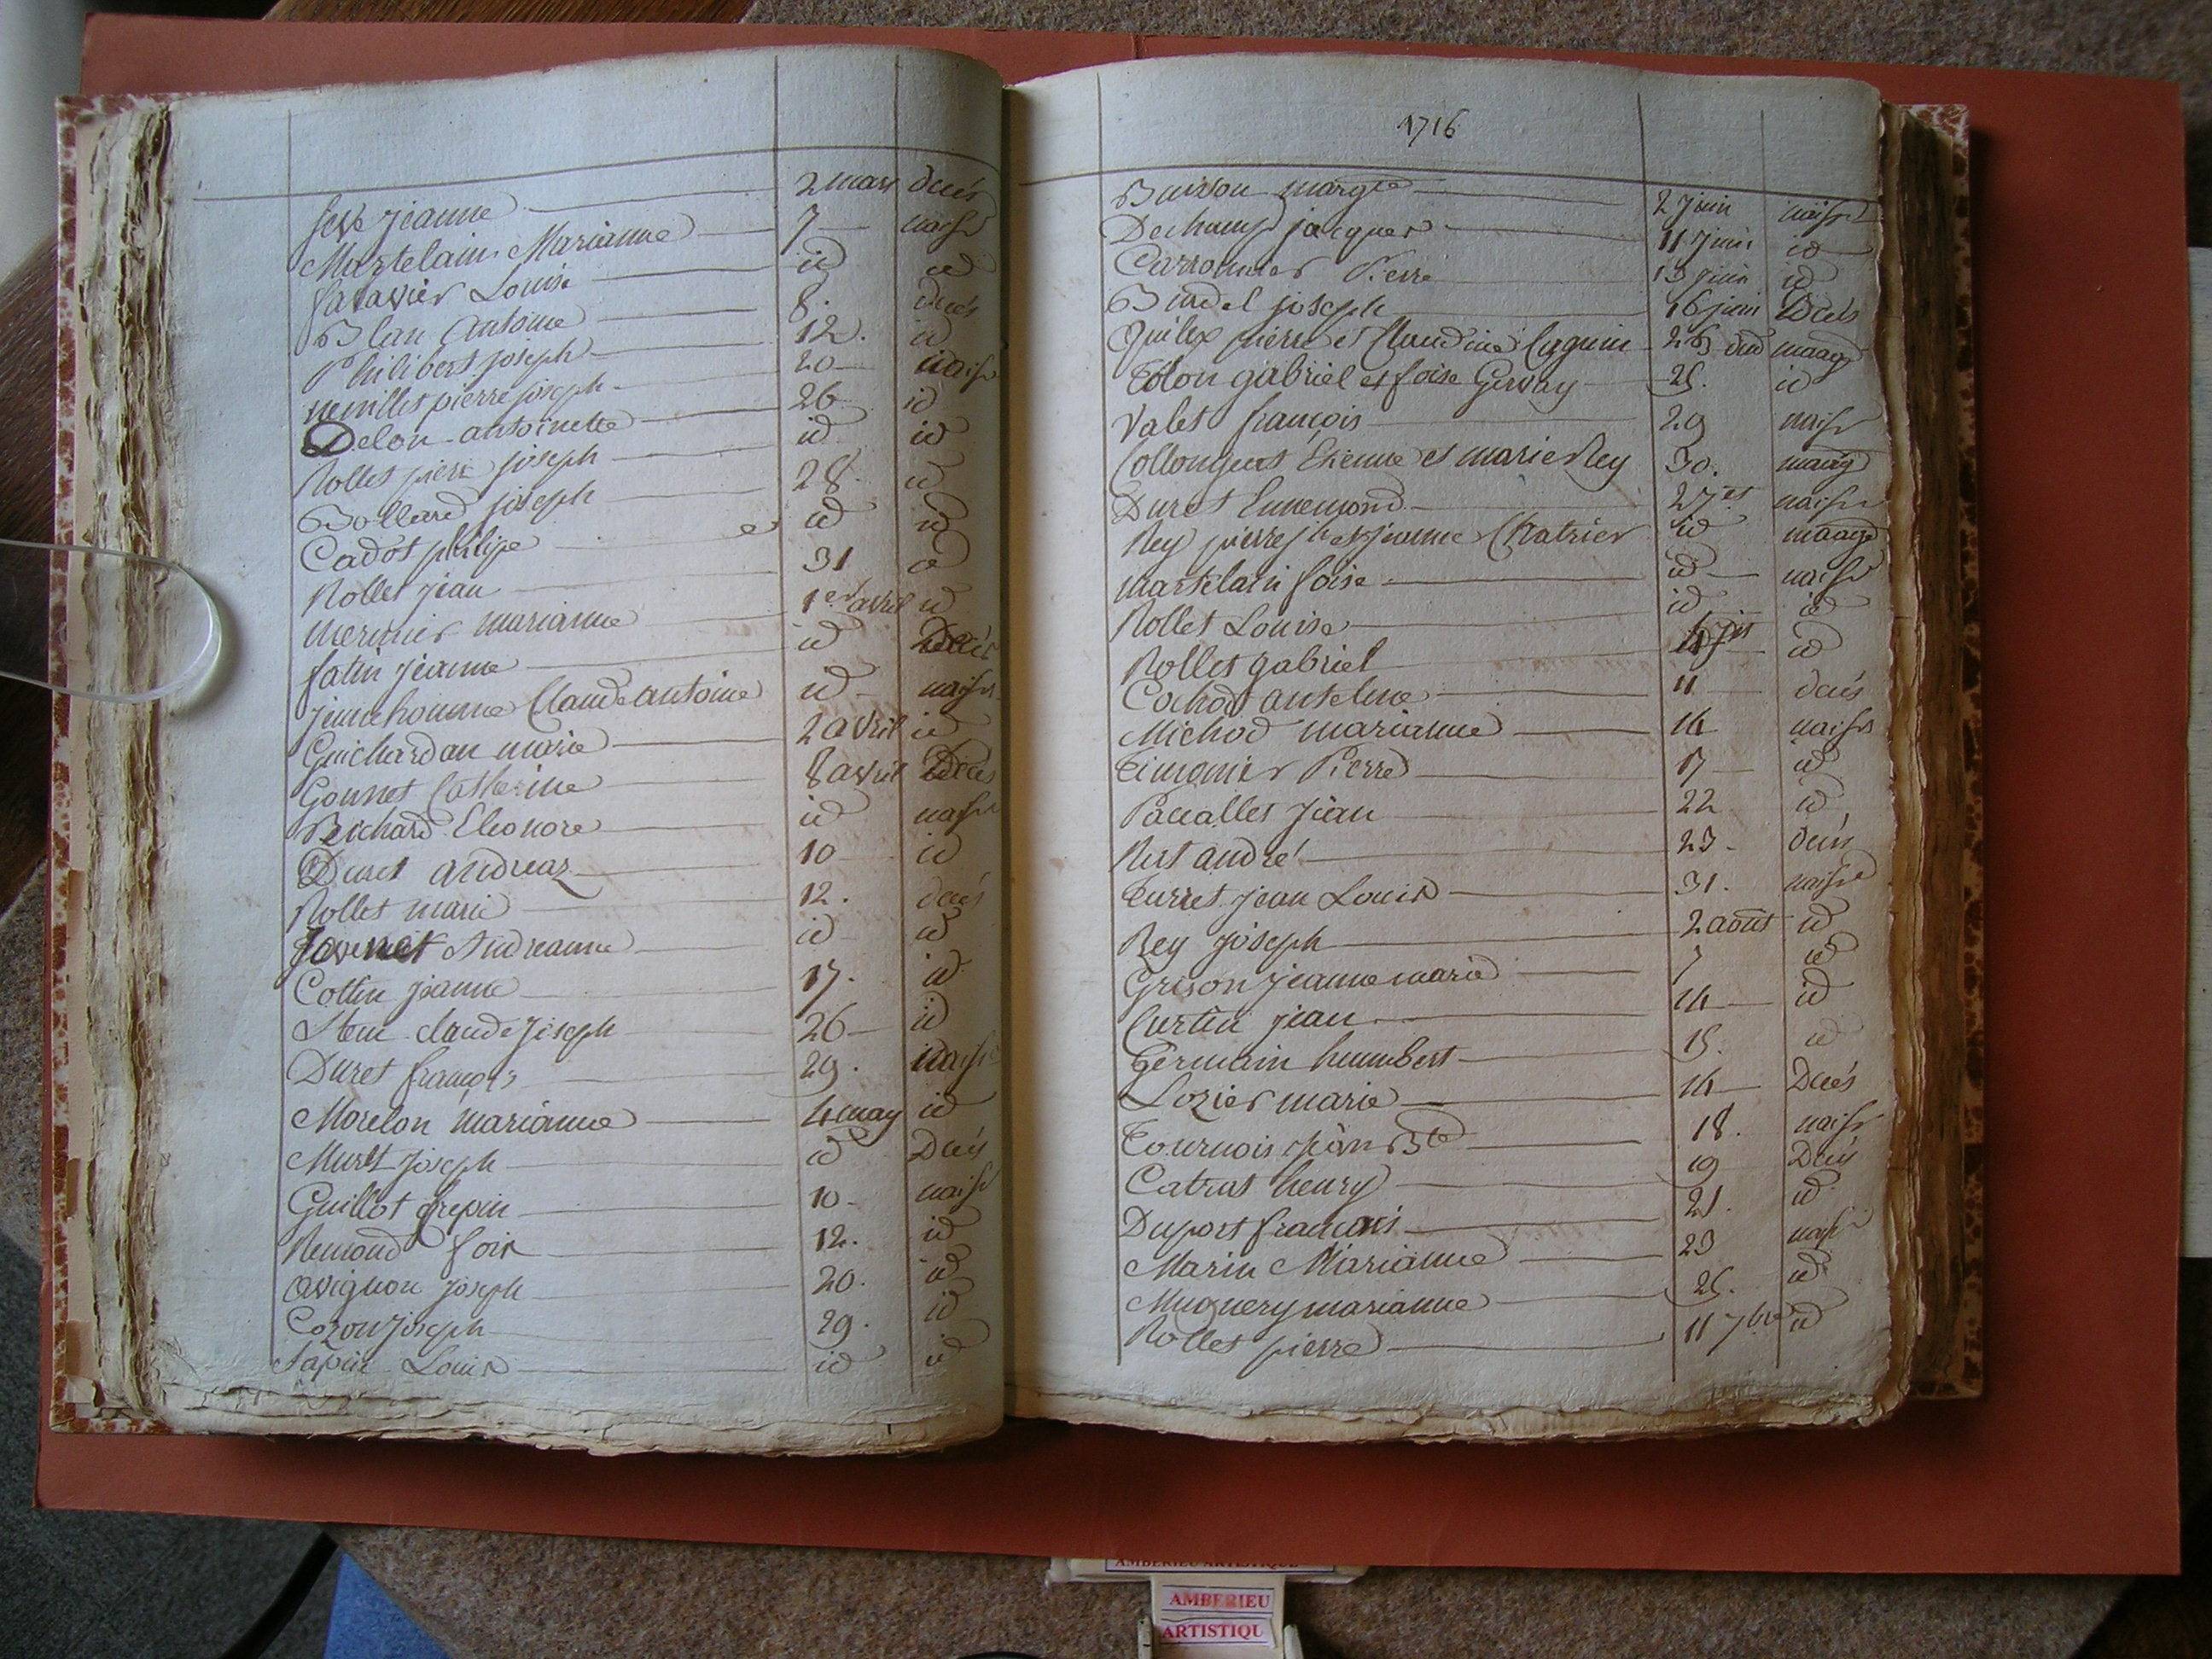 jeanne 2 mars decés
Martelain Marianne 7 naisse
Favavier Louise id id
Blan Antoine 8. decés
Philibert joseph 12. id
pierre joseph 20 naisse
Delon antoinette 26 id
Rollet pierre joseph id id
Bollard joseph 28. id
Cadot philipe id id
Rollet jean 31 id
mermier marianne 1er avril id
fatin jeanne id Decés
jeunehomme Claude antoine id naisse
Guichardan marie 2 avril id
Gonnet Catherine 8 avril Decés
Richard Eleonore id naisse
Duret andreaz 10 id
Rollet marie 12. decés
Andreanne id id
Cottin jeanne 17. id
claude joseph 26 id
Duret françois 29. naisse
Morelon marianne 4 may id
Muret joseph id Decés
Guillot crepin 10 naisse
Remond fois 12. id
avignon joseph 20. id
Cozon joseph 29. id
Sapin Louis id id
1716
Buisson margte 2 juin naisse
Dechamp jacques 11 juin id
Carronnier Pierre 13 juin id
Bindel joseph 16 juin Decés
pierre et Claudine 26 dud maage
Tolon gabriel et foise Gervay 25. id
Valet françois 29 naisse
Collonguet Etienne et marie Rey 30. maage
Duret Ennemond 2 7et naisse
Rey pierre jh et jeanne Chatrier id maage
martelain foise id naisse
Rollet Louise id id
Rollet gabriel id
Cochod antelme 11 decés
Michod marianne 14 naisse
Timonier Pierre 17 id
Paccallet jean 22 id
andré 23 decés
Turret jean Louis 31. naisse
Rey joseph 2 aout id
Grison jeanne marie 7 id
Curtin jean 14 id
Germain humbert 15. id
Lozier marie 14 Decés
Tournois jean Bte 18. naisse
Catras henry 19 Decés
Duport françois 21. id
Marin Marianne 23 naisse
Mugnery marianne 25. id
Rollet pierre 11 7bre id
AMBERIEU ARTISTIQUE
AMBERIEU
ARTISTIQU